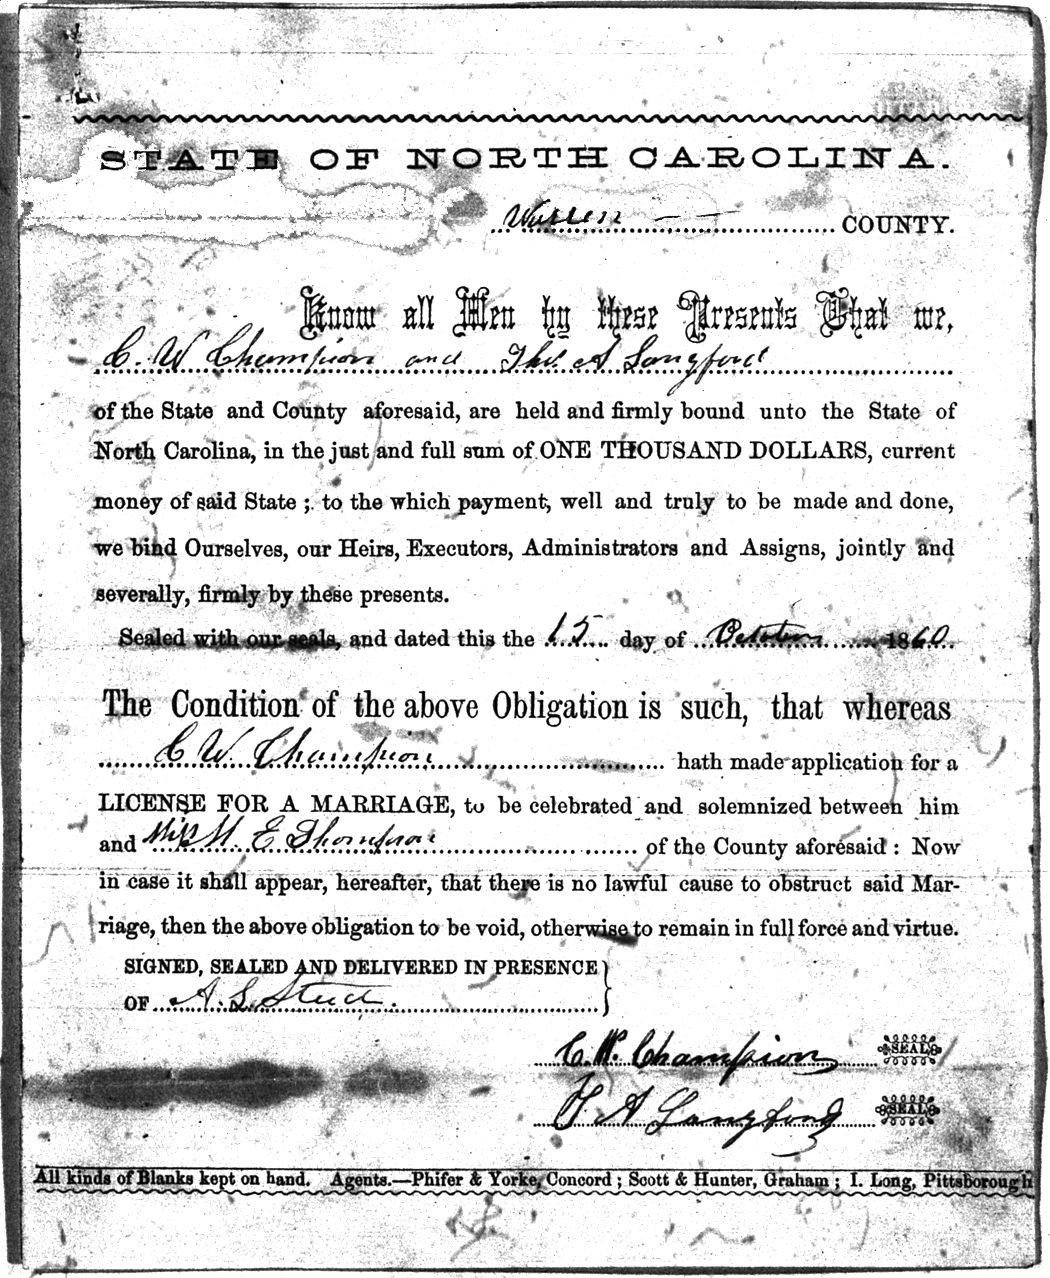 STATE OF NORTH CAROLINA.
Warren COUNTY.
Know all Men by these Presents That we,
C. W Champion and Tho. A Langford
of the State and County aforesaid, are held and firmly bound unto the State of
North Carolina, in the just and full sum of ONE THOUSAND DOLLARS, current
money of said State ; to the which payment, well and truly to be made and done,
we bind Ourselves, our Heirs, Executors, Administrators and Assigns, jointly and
severally, firmly by these presents.
Sealed with our seals, and dated this the 15 day of October 1860.
The Condition of the above Obligation is such, that whereas
C W Champion hath made application for a
LICENSE FOR A MARRIAGE, to be celebrated and solemnized between him
and Miss M. E Thompson of the County aforesaid : Now
in case it shall appear, hereafter, that there is no lawful cause to obstruct said Mar-
riage, then the above obligation to be void, otherwise to remain in full force and virtue.
SIGNED, SEALED AND DELIVERED IN PRESENCE
OF A. L. Steed.
C. W. Champion SEAL
T A Langford SEAL
All kinds of Blanks kept on hand. Agents.—Phifer & Yorke, Concord ; Scott & Hunter, Graham ; I. Long, Pittsborough